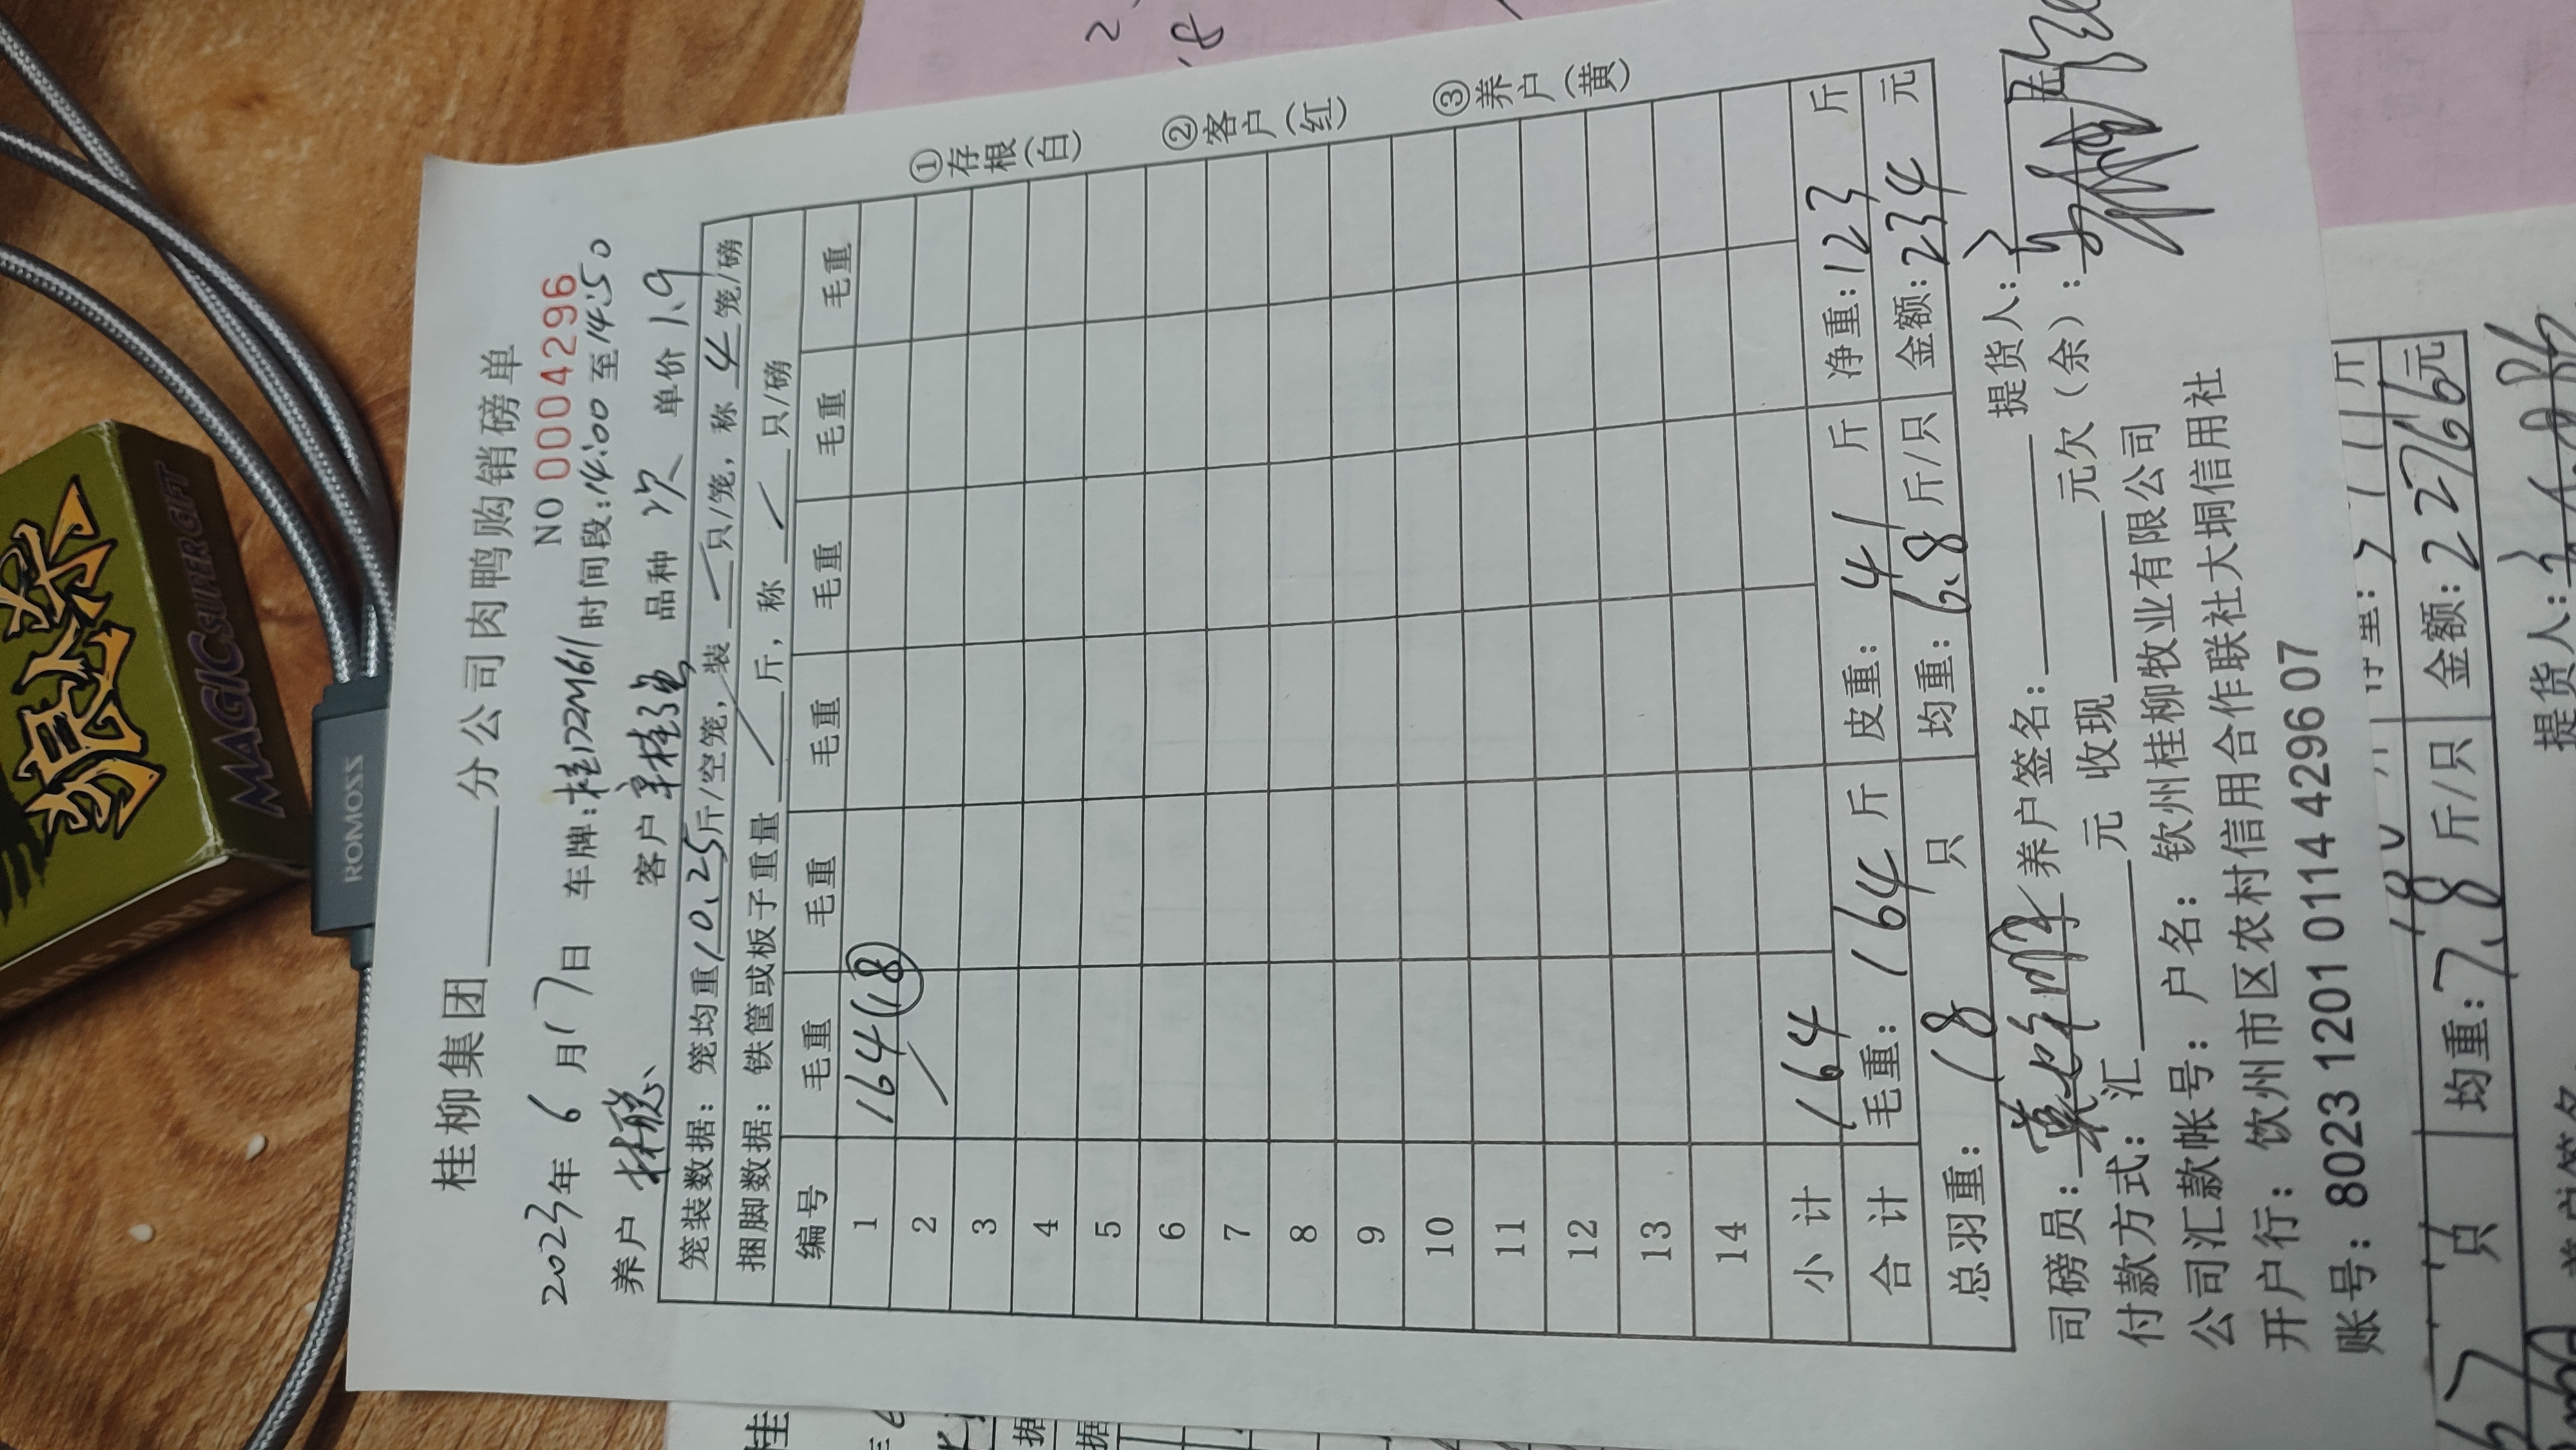 桂柳集团______分公司肉鸭购销磅单
NO 0004296
2023年 6 月17日 车牌:桂12M611 时间段:14:00 至14:50
养户 林聪 客户 品种 次 单价 1.9
笼装数据: 笼均重10.25斤/空笼, 装 只/笼, 称 4 笼/磅
捆脚数据: 铁筐或板子重量 斤, 称 只/磅
编号 毛重 毛重 毛重 毛重 毛重 毛重
1 164(18)
2
3
4
5
6
7
8
9
10
11
12
13
14
小计 164
合计 毛重: 164 斤 皮重: 41 斤 净重:123 斤
总羽重: 18 只 均重: 6.8 斤/只 金额:234 元
司磅员: 养户签名: 提货人:
付款方式: 汇______元 收现______元欠(余):
公司汇款帐号: 户名: 钦州桂柳牧业有限公司
开户行: 钦州市区农村信用合作联社大垌信用社
账号: 8023 1201 0114 4296 07
①存根(白)
②客户(红)
③养户(黄)
ROMOSS
狼人杀
MAGIC SUPERGIFT
斤
只 均重:7.8 斤/只 金额:22766元
提货人: